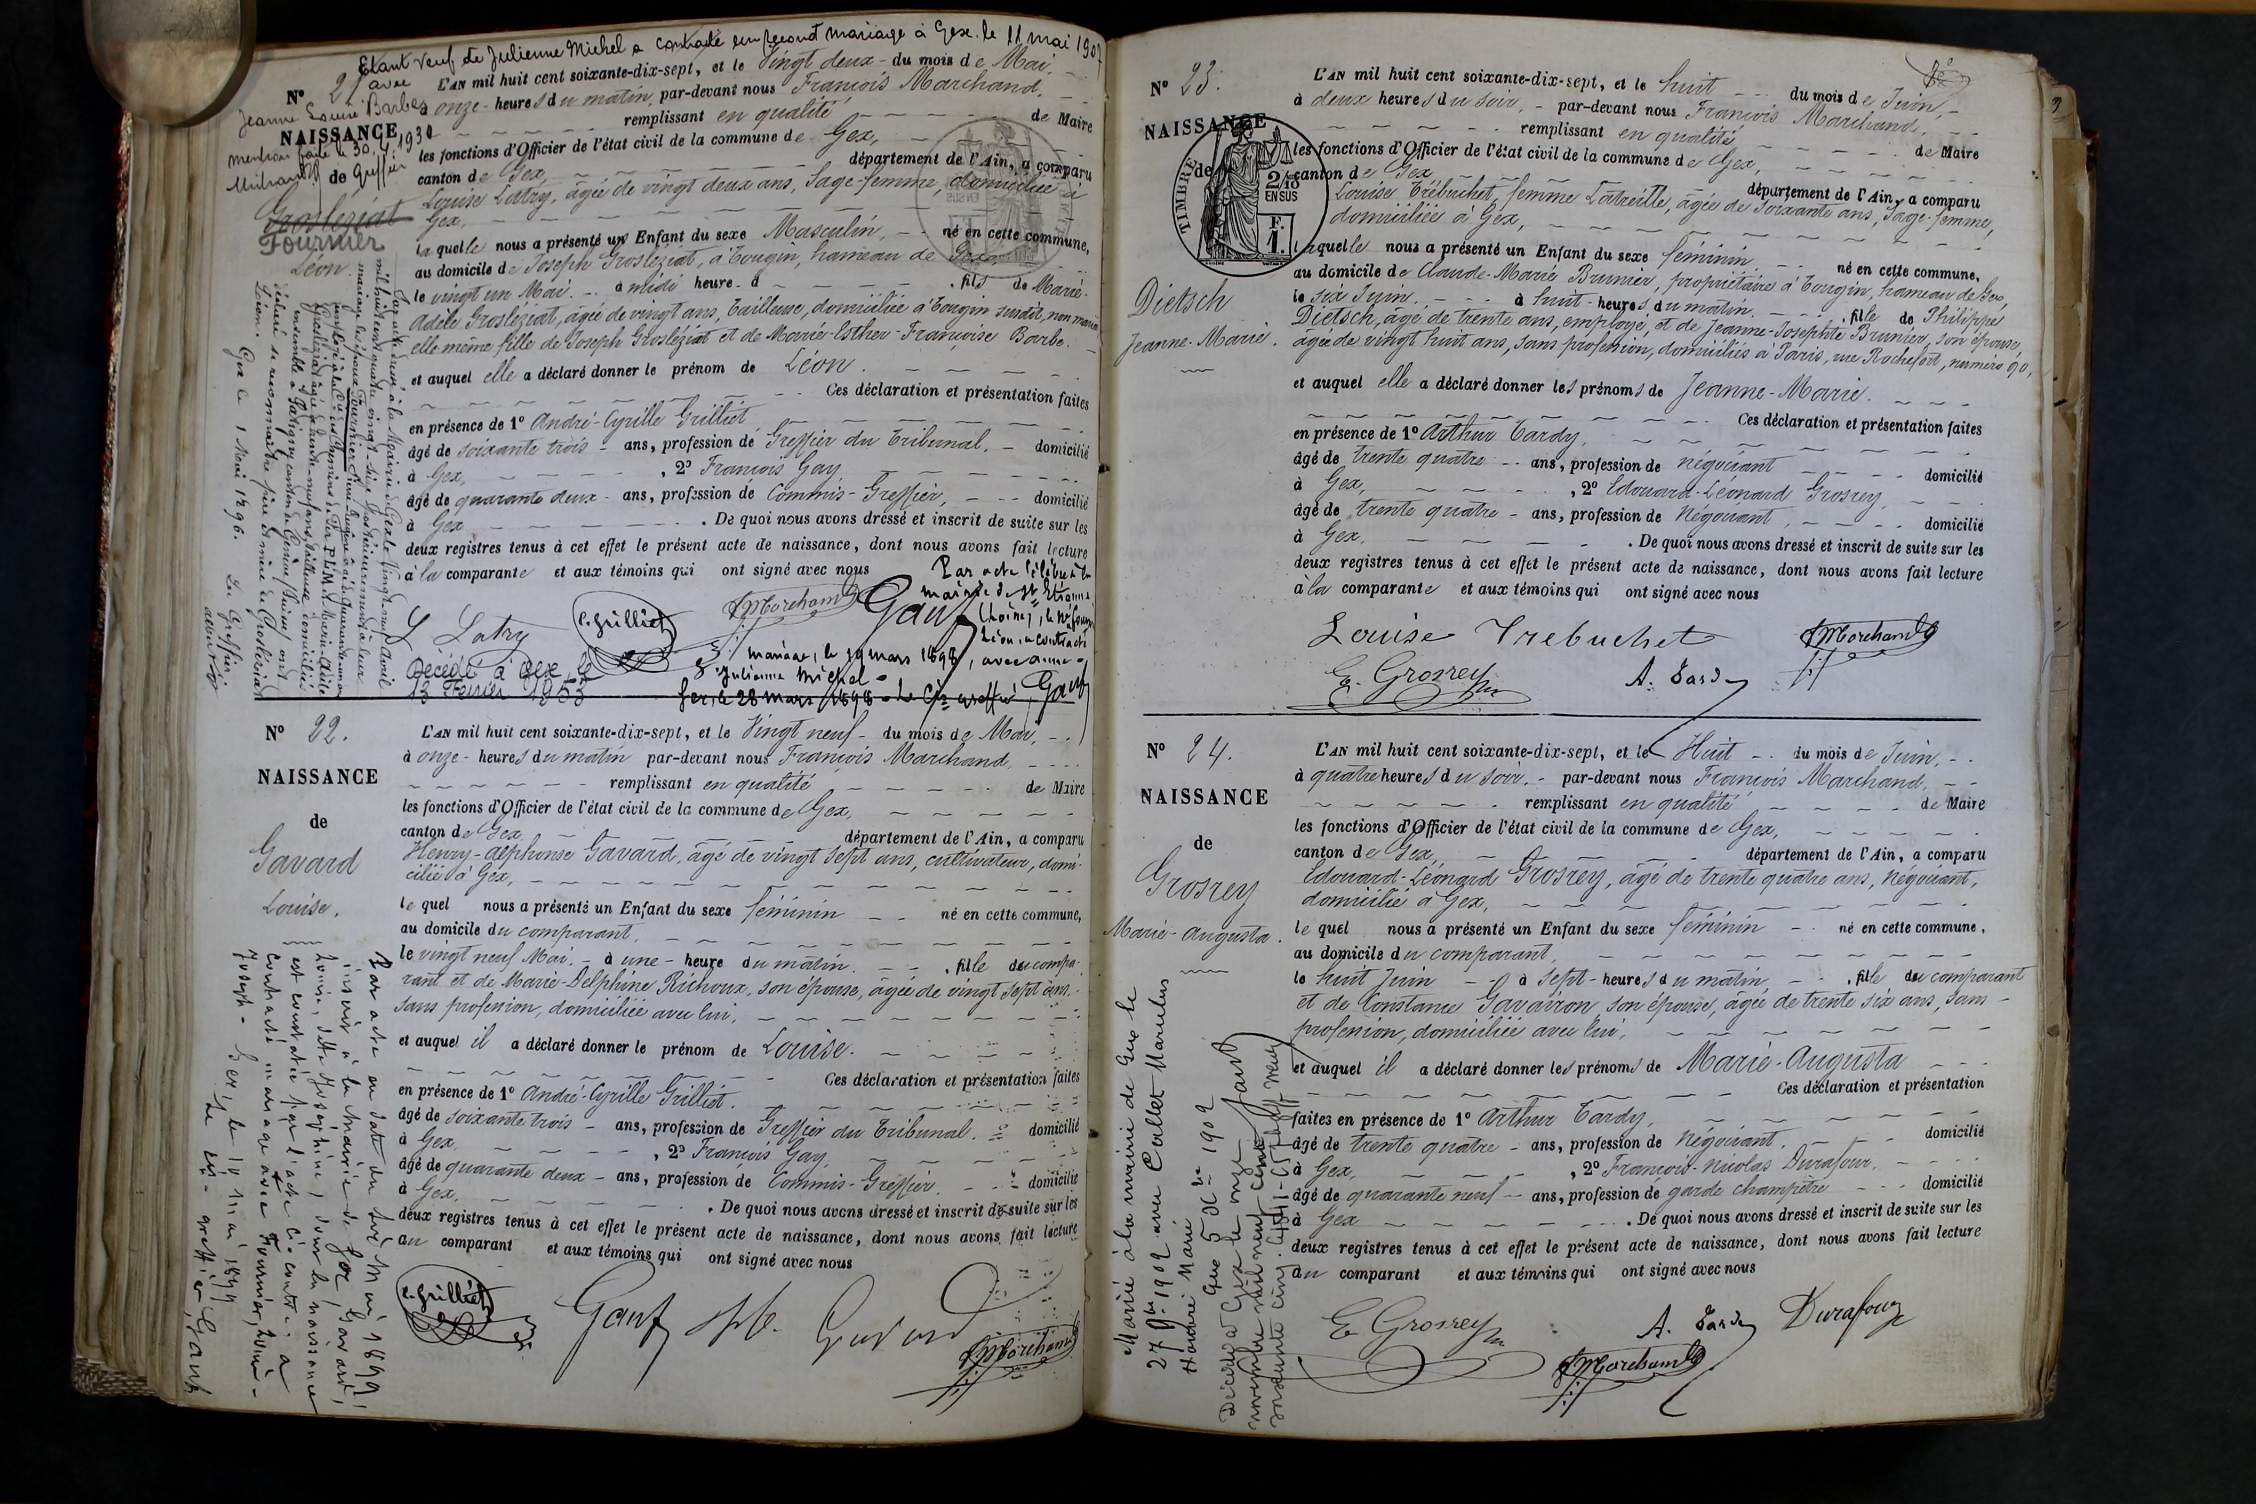 Etant veuf de Julienne Michel a contracté un second mariage à Gex le 11 mai 1907
avec
Jeanne Louise Barbez
mention faite le 30. 4. 1930
Greffier
N° 21
NAISSANCE
de
Grosleziat
Fournier
Léon.
L'AN mil huit cent soixante-dix-sept, et le Vingt deux - du mois de Mai.
à onze - heures du matin, par-devant nous François Marchand,
remplissant en qualité de Maire
les fonctions d'Officier de l'état civil de la commune de Gex,
canton de Gex, département de l'Ain, a comparu
Louise Latry, âgée de vingt deux ans, Sage-femme, domiciliée à
Gex,
laquelle nous a présenté un Enfant du sexe Masculin, né en cette commune,
au domicile de Joseph Grosléziat, à Tougin, hameau de Gex
le vingt un Mai. à midi heure d . fils de Marie-
Adèle Grosleziat, âgée de vingt ans, Tailleuse, domiciliée à Tougin susdit, non mariée
elle même fille de Joseph Grosléziat et de Marie-Esther-Françoise Barbe.
et auquel elle a déclaré donner le prénom de Léon.
Ces déclaration et présentation faites
en présence de 1° André-Cyrille Grilliet
âgé de soixante trois - ans, profession de Greffier du Tribunal. - domicilié
à Gex, , 2° François Gay
âgé de quarante deux - ans, profession de Commis-Greffier, domicilié
à Gex . De quoi nous avons dressé et inscrit de suite sur les
deux registres tenus à cet effet le présent acte de naissance, dont nous avons fait lecture
à la comparante et aux témoins qui ont signé avec nous
L Latry
C. Grilliet
FMarchand
Par acte célébré à la
mairie de St Etienne
(Loire), le
Léon, a contracté
mariage, le 19 mars 1898, avec Anne-
Julienne Michel -
Gex, le 28 mars 1898 - Le Cis greffier,
Décédé à Gex, le
13 Février 1953
Par acte dressé à la Mairie de Gex le Vingt neuf Avril
mil huit cent quatre vingt seize
mariage, les époux Fournier
ensemble à Sartigny canton de Genève (Suisse) ont
déclaré se reconnaître père et mère de Grosleziat
Léon. Gex le 1 Mai 1896. Le Greffier.
N° 22.
NAISSANCE
de
Gavard
Louise.
L'AN mil huit cent soixante-dix-sept, et le Vingt neuf - du mois de Mai,
à onze - heures du matin par-devant nous François Marchand,
remplissant en qualité de Maire
les fonctions d'Officier de l'état civil de la commune de Gex,
canton de Gex département de l'Ain, a comparu
Henry-Alphonse Gavard, âgé de vingt sept ans, cultivateur, domi-
cilié à Gex,
lequel nous a présenté un Enfant du sexe féminin né en cette commune,
au domicile du comparant.
le vingt neuf Mai. - à une - heure du matin. . fille du compa-
rant et de Marie-Delphine Richoux, son épouse, âgée de vingt sept ans,
sans profession, domiciliée avec lui,
et auquel il a déclaré donner le prénom de Louise.
Ces déclaration et présentation faites
en présence de 1° André-Cyrille Grilliet.
âgé de soixante trois - ans, profession de Greffier du Tribunal. domicilié
à Gex, , 2° François Gay
âgé de quarante deux - ans, profession de Commis-Greffier. domicilié
à Gex, . De quoi nous avons dressé et inscrit de suite sur les
deux registres tenus à cet effet le présent acte de naissance, dont nous avons fait lecture
au comparant et aux témoins qui ont signé avec nous
C. Grilliet
Gavard
FMarchand
Par acte en date du
inscrit à la Mairie de Gex, Gavard,
Louise, dite Joséphine, dont la naissance
est constatée par l'acte ci-contre, a
contracté mariage avec Fournier, Louis-
Joseph - Gex, le 14 Mai 1899
Le Cis - greffier,
N° 23.
NAISSANCE
de
Dietsch
Jeanne-Marie.
TIMBRE
2/10
EN SUS
F.
1.
L'AN mil huit cent soixante-dix-sept, et le huit du mois de Juin,
à deux heures du soir, - par-devant nous François Marchand,
remplissant en qualité de Maire
les fonctions d'Officier de l'état civil de la commune de Gex,
canton de Gex département de l'Ain, a comparu
Louise Trébuchet, femme Latreille, âgée de soixante ans, Sage-femme,
domiciliée à Gex,
laquelle nous a présenté un Enfant du sexe féminin né en cette commune,
au domicile de Claude-Marie Brunier, propriétaire à Tougin, hameau de Gex,
le six Juin. à huit - heures du matin. . fille de Philippe
Dietsch, âgé de trente ans, employé, et de Jeanne-Josephte Brunier, son épouse,
âgée de vingt huit ans, sans profession, domiciliés à Paris, rue Rochefort, numéro 90,
et auquel elle a déclaré donner les prénoms de Jeanne-Marie.
Ces déclaration et présentation faites
en présence de 1° Arthur Tardy,
âgé de trente quatre - ans, profession de négociant domicilié
à Gex, , 2° Edouard-Léonard Grosrey,
âgé de trente quatre - ans, profession de Négociant, domicilié
à Gex, . De quoi nous avons dressé et inscrit de suite sur les
deux registres tenus à cet effet le présent acte de naissance, dont nous avons fait lecture
à la comparante et aux témoins qui ont signé avec nous
Louise Trebuchet
FMarchand
E. Grosrey
A. Tardy
N° 24.
NAISSANCE
de
Grosrey
Marie-Augusta.
L'AN mil huit cent soixante-dix-sept, et le Huit du mois de Juin,
à quatre heures du soir, - par-devant nous François Marchand,
remplissant en qualité de Maire
les fonctions d'Officier de l'état civil de la commune de Gex,
canton de Gex, département de l'Ain, a comparu
Edouard-Léonard Grosrey, âgé de trente quatre ans, Négociant,
domicilié à Gex,
lequel nous a présenté un Enfant du sexe féminin né en cette commune,
au domicile du comparant,
le huit Juin à sept - heures du matin, . fille du comparant
et de Constance Gavairon son épouse, âgée de trente six ans, sans -
profession, domiciliée avec lui,
et auquel il a déclaré donner les prénoms de Marie-Augusta
Ces déclaration et présentation
faites en présence de 1° Arthur Tardy,
âgé de trente quatre - ans, profession de négociant. domicilié
à Gex, , 2° François-Nicolas Durafour,
âgé de quarante neuf - ans, profession de garde champêtre domicilié
à Gex . De quoi nous avons dressé et inscrit de suite sur les
deux registres tenus à cet effet le présent acte de naissance, dont nous avons fait lecture
au comparant et aux témoins qui ont signé avec nous
E Grosrey
A. Tardy
Durafour
FMarchand
Marié à la mairie de Gex le
27 9bre 1902 avec Callet Marulus
Honoré Marie
Gex 5 Xbre 1902
Décédée à Gex le onze
novembre mil neuf cent
soixante cinq.